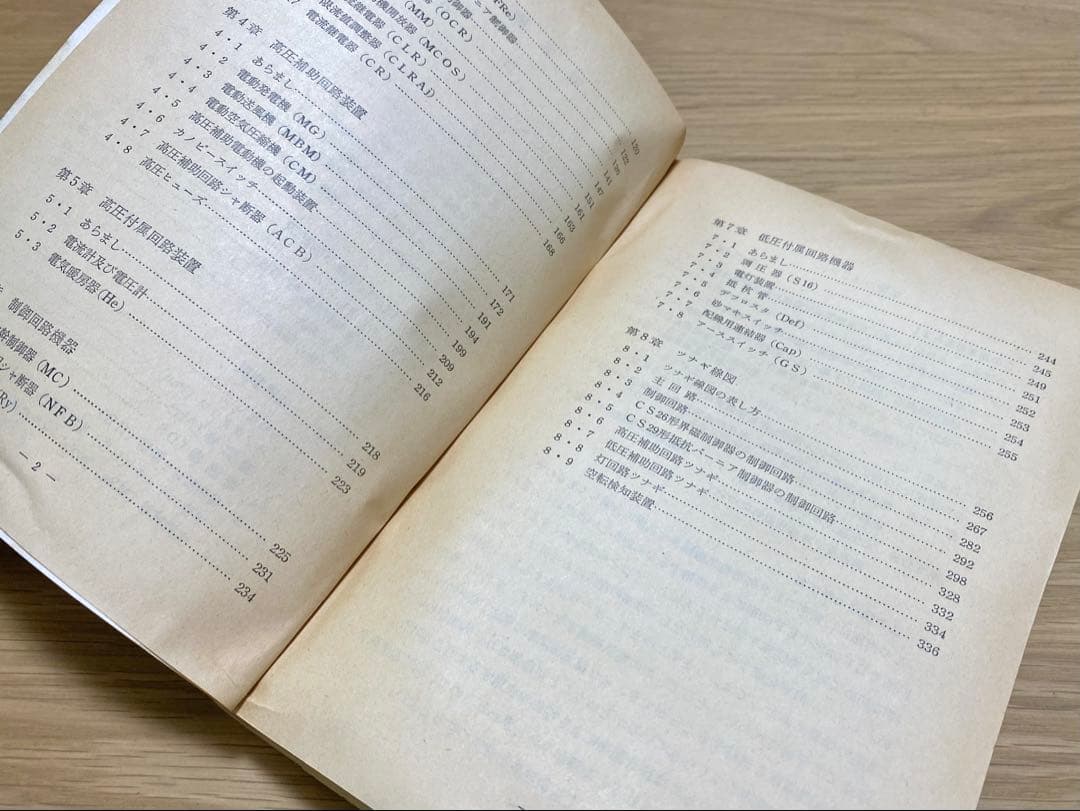 (FRe)
ニア制御器
(OCR)
(MM)
機開放器 (MCOS) 161
継電器 (CLR) 163
限流値調整器 (CLRAj) 166
電流継電器 (CR) 168
第4章 高圧補助回路装置
4・1 あらまし 171
4・2 電動発電機(MG) 172
4・3 電動送風機(MBM) 191
4・4 電動空気圧縮機(CM) 194
4・5 高圧補助電動機の起動装置 199
4・6 カノピースイッチ 209
4・7 高圧補助回路シャ断器(ACB) 212
4・8 高圧ヒューズ 216
第5章 高圧付属回路装置
5・1 あらまし 218
5・2 電流計及び電圧計 219
5・3 電気暖房器(He) 223
制御回路機器
幹制御器(MC) 225
シャ断器(NFB) 231
Ry) 234
— 2 —
第7章 低圧付属回路機器
7・1 あらまし 244
7・2 調圧器(S16) 245
7・3 電灯装置 249
7・4 抵抗管 251
7・5 デフロスタ(Def) 252
7・6 砂マキスイッチ 253
7・7 配線用連結器(Cap) 254
7・8 アーススイッチ(GS) 255
第8章 ツナギ線図
8・1 ツナギ線図の表し方 256
8・2 主回路 267
8・3 制御回路 282
8・4 CS26形界磁制御器の制御回路 292
8・5 CS29形抵抗バーニア制御器の制御回路 298
8・6 高圧補助回路ツナギ 328
8・7 低圧補助回路ツナギ 332
8・8 灯回路ツナギ 334
8・9 空転検知装置 336